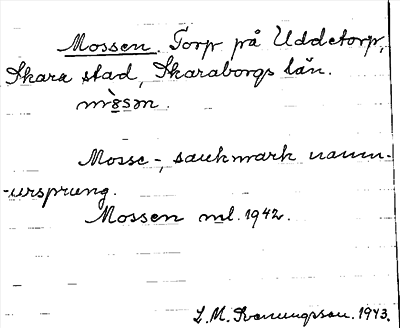 Mossen. Torp på Uddetorp,
Skara stad, Skaraborgs län.
mòsən.
Mosse-, sankmark namn-
-ursprung.
Mossen ml. 1942.
L. M. Svanungson. 1943.